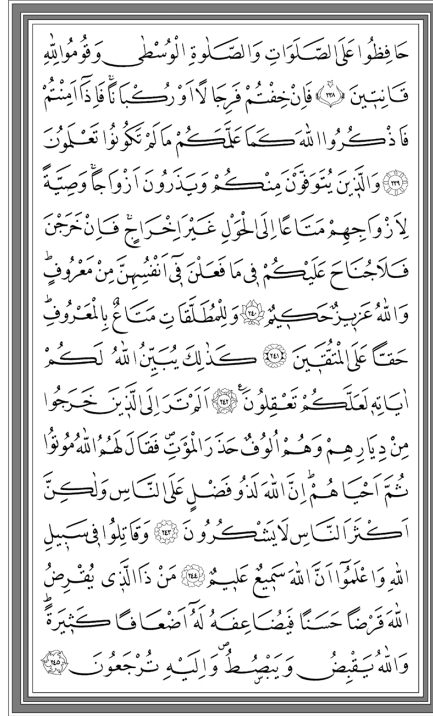 حَافِظُوا عَلَى الصَّلَوَاتِ وَالصَّلٰوةِ الْوُسْطٰى وَقُومُوا لِلّٰهِ
قَانِتٖينَ ﴿٢٣٨﴾ فَاِنْ خِفْتُمْ فَرِجَالًا اَوْ رُكْبَانًاۚ فَاِذَٓا اَمِنْتُمْ
فَاذْكُرُوا اللّٰهَ كَمَا عَلَّمَكُمْ مَا لَمْ تَكُونُوا تَعْلَمُونَ
﴿٢٣٩﴾ وَالَّذٖينَ يُتَوَفَّوْنَ مِنْكُمْ وَيَذَرُونَ اَزْوَاجًاۚ وَصِيَّةً
لِاَزْوَاجِهِمْ مَتَاعًا اِلَى الْحَوْلِ غَيْرَ اِخْرَاجٍۚ فَاِنْ خَرَجْنَ
فَلَا جُنَاحَ عَلَيْكُمْ فٖى مَا فَعَلْنَ فٖٓى اَنْفُسِهِنَّ مِنْ مَعْرُوفٍؕ
وَاللّٰهُ عَزٖيزٌ حَكٖيمٌ ﴿٢٤٠﴾ وَلِلْمُطَلَّقَاتِ مَتَاعٌ بِالْمَعْرُوفِؕ
حَقًّا عَلَى الْمُتَّقٖينَ ﴿٢٤١﴾ كَذٰلِكَ يُبَيِّنُ اللّٰهُ لَكُمْ
اٰيَاتِهٖ لَعَلَّكُمْ تَعْقِلُونَࣖ ﴿٢٤٢﴾ اَلَمْ تَرَ اِلَى الَّذٖينَ خَرَجُوا
مِنْ دِيَارِهِمْ وَهُمْ اُلُوفٌ حَذَرَ الْمَوْتِࣕ فَقَالَ لَهُمُ اللّٰهُ مُوتُوا
ثُمَّ اَحْيَاهُمْؕ اِنَّ اللّٰهَ لَذُو فَضْلٍ عَلَى النَّاسِ وَلٰكِنَّ
اَكْثَرَ النَّاسِ لَا يَشْكُرُونَ ﴿٢٤٣﴾ وَقَاتِلُوا فٖى سَبٖيلِ
اللّٰهِ وَاعْلَمُٓوا اَنَّ اللّٰهَ سَمٖيعٌ عَلٖيمٌ ﴿٢٤٤﴾ مَنْ ذَا الَّذٖى يُقْرِضُ
اللّٰهَ قَرْضًا حَسَنًا فَيُضَاعِفَهُ لَهُٓ اَضْعَافًا كَثٖيرَةًؕ
وَاللّٰهُ يَقْبِضُ وَيَبْصُۣطُࣕ وَاِلَيْهِ تُرْجَعُونَ ﴿٢٤٥﴾